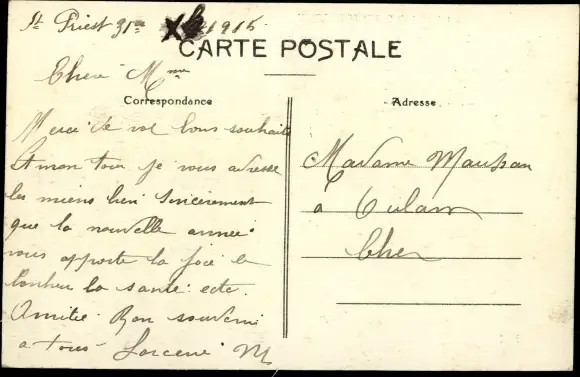 St Priest 31 1915
CARTE POSTALE
Chere Mme
Correspondance
Adresse
Merci de vos bons souhaits
A mon tour je vous adresse
les miens bien sincerement
que la nouvelle année
vous apporte la joie le
bonheur la santé ect.
Amitié Bon souvenir
a tous
Madame Maupan
a Culan
Cher